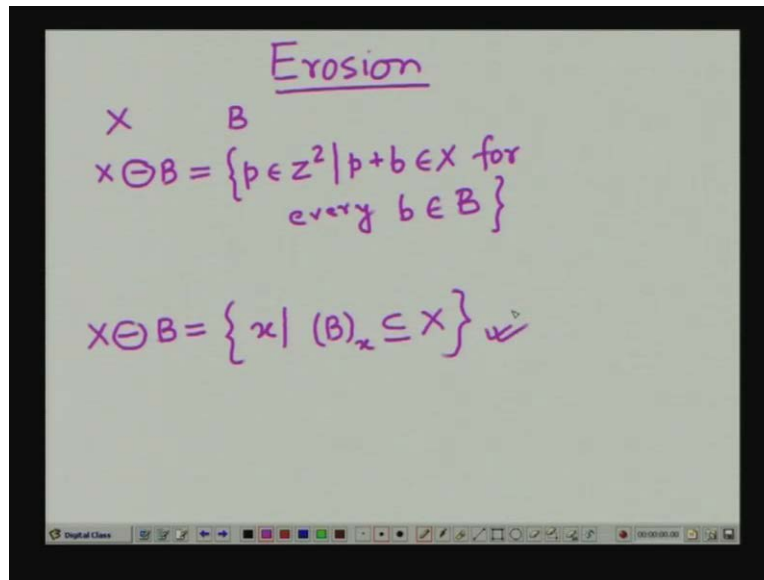 Erosion
X B
X ⊖ B = {p ∈ z² | p + b ∈ X for
every b ∈ B}
X ⊖ B = {x | (B)ₓ ⊆ X}
Digital Class
00:00:00.00